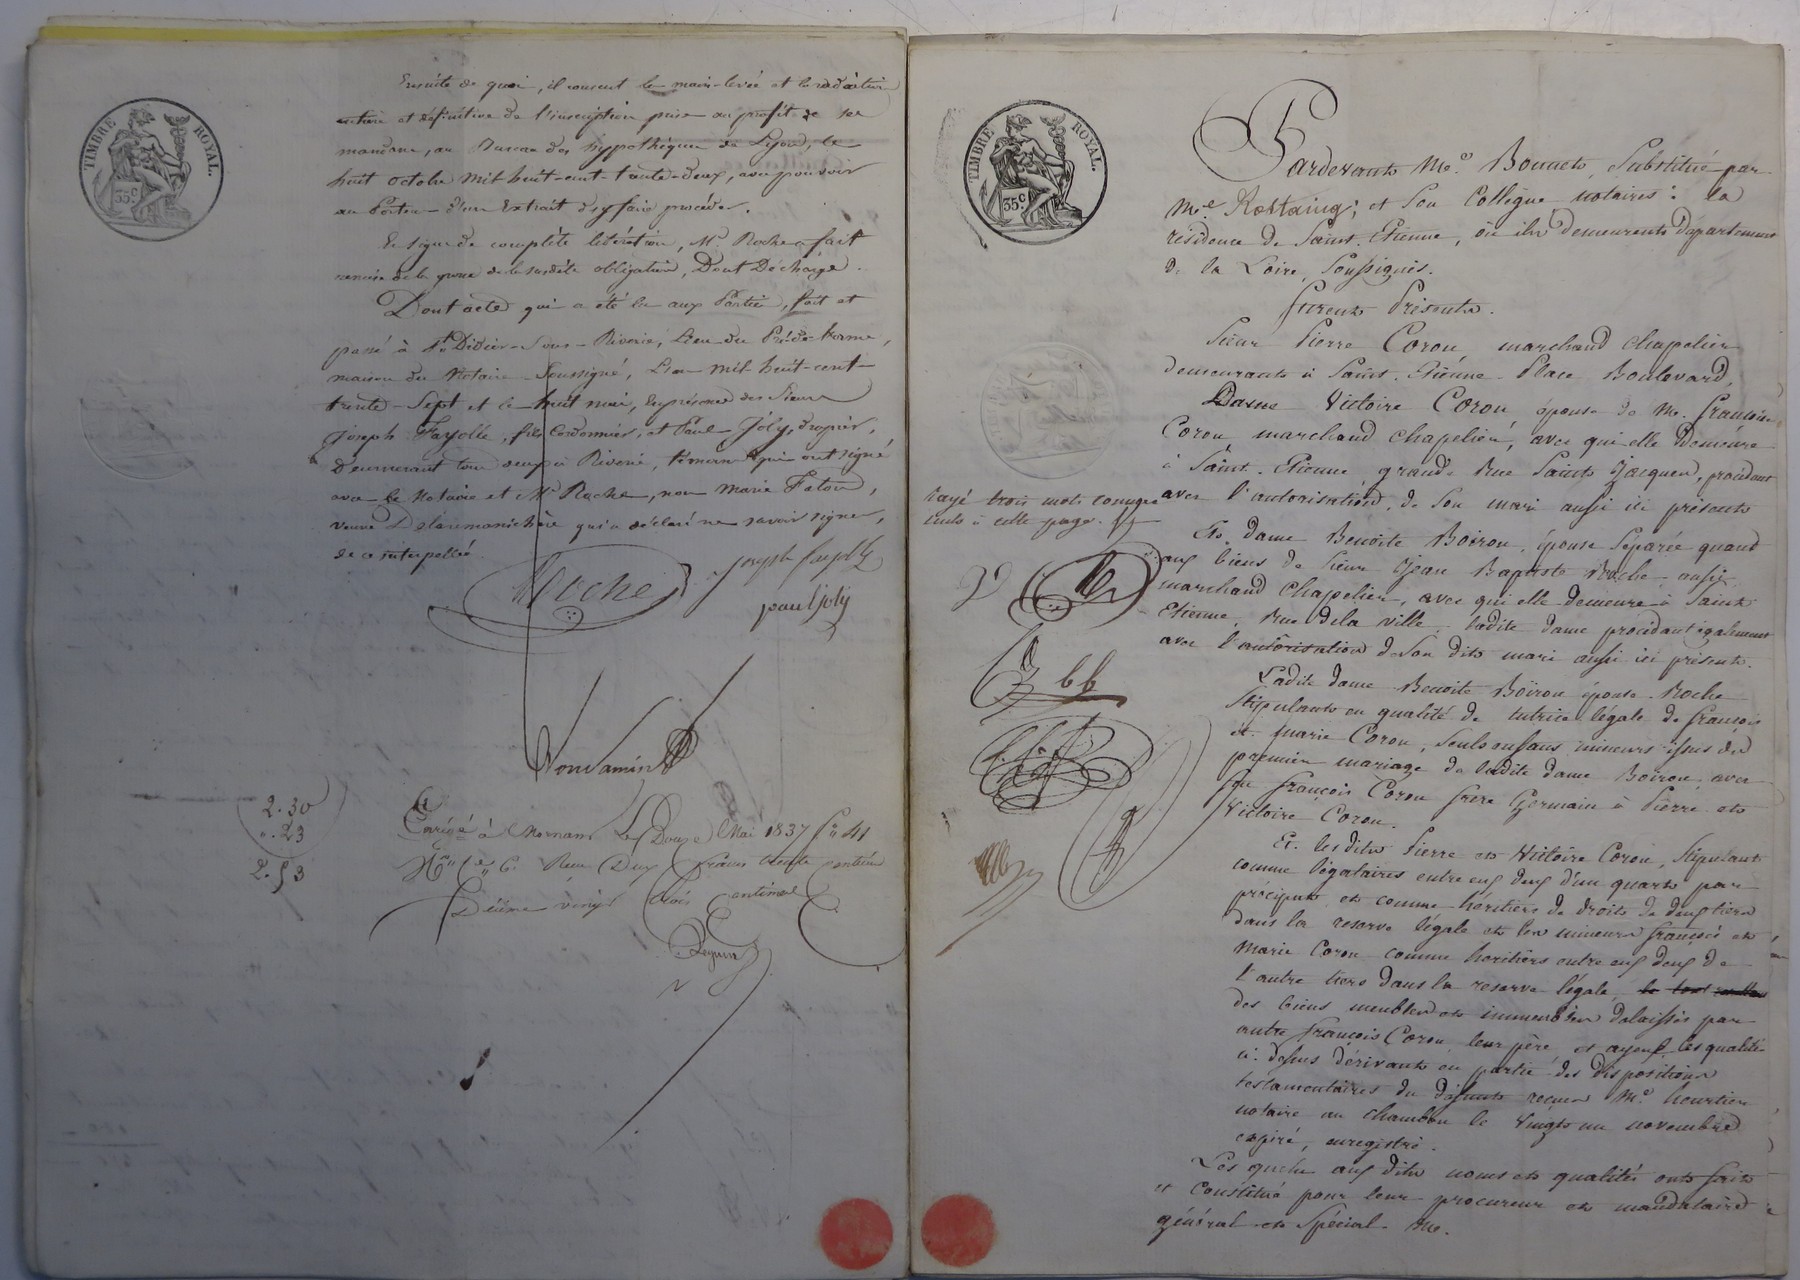 TIMBRE ROYAL.
35 c
Ensuite de quoi, il consent la main-levée et la radiation
entière et définitive de l'inscription prise au profit de sa
mandante, au Bureau des hyppothèques de Lyon, le
huit octobre mil huit-cent-trente-deux, avec pouvoir
au Porteur d'un Extrait d'y faire procéder.
En signe de complète libération, Mr. Roche a fait
remise de la grosse de la susdite obligation, Dont Décharge.
Dont acte qui a été lu aux Parties, fait et
passé à St. Didier-Sous-Riverie, Lieu du
maison du Notaire Soussigné, L'an mil huit-cent-
trente-Sept et le huit mai, En présence des Sieurs
Joseph Fayolle, fils Cordonnier, et Paul Joly, drapier,
Demeurant tous deux à Riverie, témoins qui ont signé
avec le Notaire et Mr Roche, non Marie Faton,
veuve qui a déclaré ne savoir signer,
de ce interpellée.
Roche
joseph fayolle
paul joly
2.30
".23
2.53
Enrégé à Mornant Le Douze Mai 1837 fo 41
Ro Ce 6. Reçu Deux francs trente centimes
Décime vingt trois centimes
TIMBRE ROYAL.
35 c
Pardevant Me. Bonnet, Substitué par
Me. Rostaing; et Son Collègue notaires à la
résidence de Saint-Etienne, où ils demeurent Département
de la Loire, Soussignés.
furent Présents.
Sieur Pierre Coron, marchand chapelier
demeurant à Saint-Etienne Place Boulevard,
Dame Victoire Coron épouse de Mr. François
Coron marchand chapelier, avec qui elle Demeure
à Saint-Etienne grande Rue Saint Jacques, procédant
avec l'autorisation de Son mari aussi ici présent
Et dame Benoite Boiron, épouse Séparée quand
aux biens de Sieur Jean Baptiste Roche, aussi
marchand chapelier, avec qui elle demeure à Saint
Etienne, Rue de la ville, ladite dame procédant également
avec l'autorisation de Son dit mari aussi ici présent.
Ladite dame Benoite Boiron épouse Roche
Stipulant en qualité de tutrice légale de François
et marie Coron, Seuls enfans mineurs issus du
premier mariage de ladite dame Boiron, avec
feu François Coron frere Germain à Pierre et
Victoire Coron.
Et lesdits Pierre et Victoire Coron, Stipulant
comme légataires entre eux deux d'un quart par
préciput, et comme héritiers de droit de deux tiers
dans la reserve légale et les mineurs François et
Marie Coron comme héritiers entre eux deux de
l'autre tiers dans la reserve légale
des biens meubles et immeubles délaissés par
autre François Coron leur père et ayeul les qualités
ci-dessus dérivant en partie des dispositions
testamentaires du défunt reçues Me. heurtier
notaire au chambon le vingt un novembre
expiré, enregistré.
Lesquels aux dits noms et qualités ont fait
et constitué pour leur procureur et mandataire
général et Spécial Me.
rayé trois mots
à cette page.